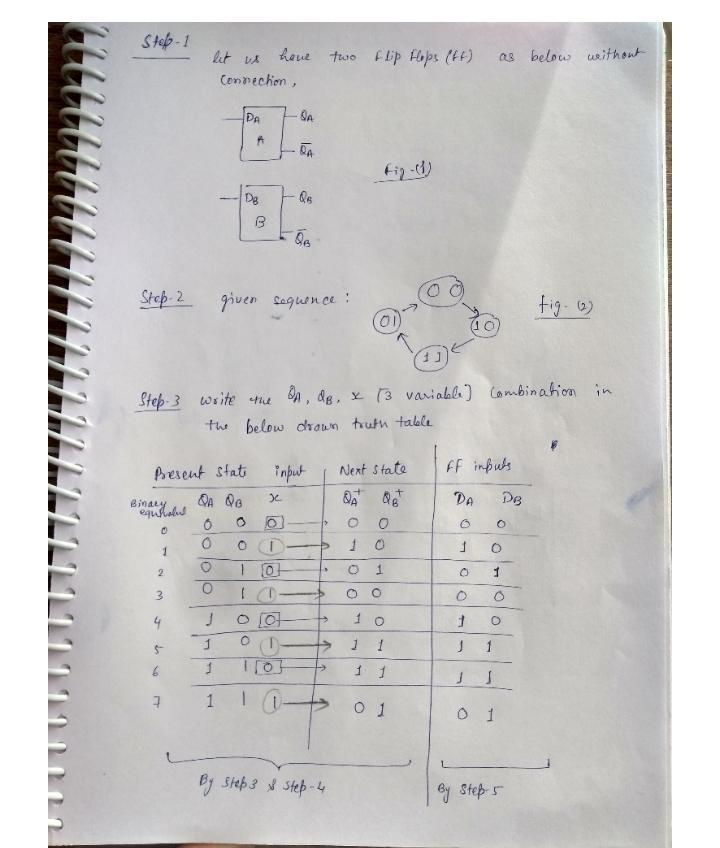 Step-1
let us have two flip flops (ff) as below without
Connection,
DA QA
A
Q̅A
fig-(1)
DB QB
B
Q̅B
Step-2 given sequence :
00
01
10
11
fig. (2)
Step-3 write the QA, QB, x [3 variable] Combination in
the below drawn truth table
Present State input Next State FF inputs
Binary equivalent QA QB x QA+ QB+ DA DB
0 0 0 0 → 0 0 0 0
1 0 0 1 → 1 0 1 0
2 0 1 0 → 0 1 0 1
3 0 1 1 → 0 0 0 0
4 1 0 0 → 1 0 1 0
5 1 0 1 → 1 1 1 1
6 1 1 0 → 1 1 1 1
7 1 1 1 → 0 1 0 1
By Step3 & Step-4 By Step-5